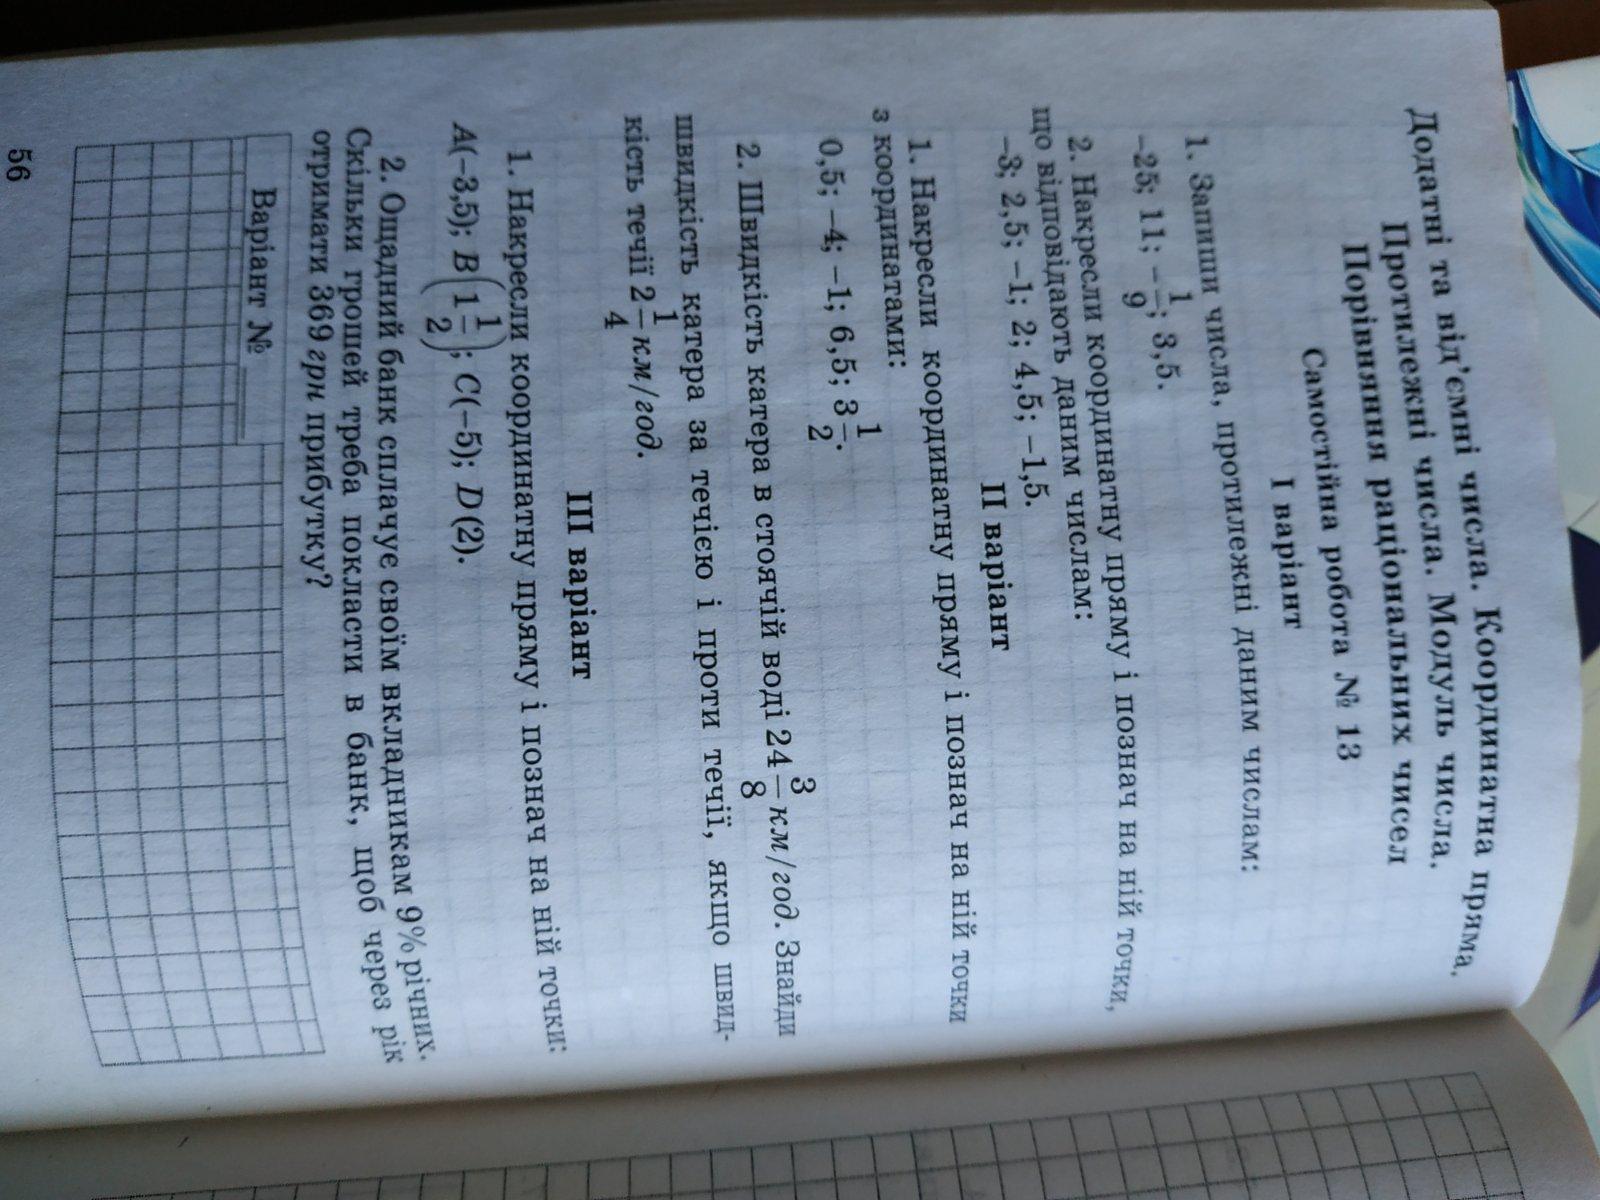 Додатні та від'ємні числа. Координатна пряма.
Протилежні числа. Модуль числа.
Порівняння раціональних чисел
Самостійна робота № 13
І варіант
1. Запиши числа, протилежні даним числам:
−25; 11; −1/9; 3,5.
2. Накресли координатну пряму і познач на ній точки,
що відповідають даним числам:
−3; 2,5; −1; 2; 4,5; −1,5.
ІІ варіант
1. Накресли координатну пряму і познач на ній точки
з координатами:
0,5; −4; −1; 6,5; 3 1/2.
2. Швидкість катера в стоячій воді 24 3/8 км/год. Знайди
швидкість катера за течією і проти течії, якщо швид-
кість течії 2 1/4 км/год.
ІІІ варіант
1. Накресли координатну пряму і познач на ній точки:
A(−3,5); B(1 1/2); C(−5); D(2).
2. Ощадний банк сплачує своїм вкладникам 9% річних.
Скільки грошей треба покласти в банк, щоб через рік
отримати 369 грн прибутку?
Варіант № ____
56